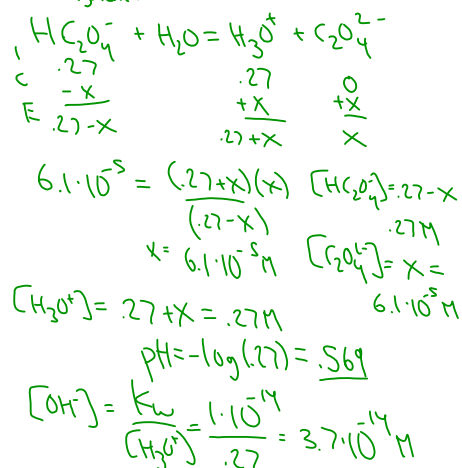 HC₂O₄⁻ + H₂O = H₃O⁺ + C₂O₄²⁻
I .27 .27 0
C -x +x +x
E .27-x .27+x x
6.1·10⁻⁵ = (.27+x)(x) / (.27-x)
x = 6.1·10⁻⁵ M
[HC₂O₄⁻] = .27-x
.27M
[C₂O₄²⁻] = x =
6.1·10⁻⁵ M
[H₃O⁺] = .27+x = .27M
pH = -log(.27) = .569
[OH⁻] = Kw / [H₃O⁺] = 1·10⁻¹⁴ / .27 = 3.7·10⁻¹⁴ M